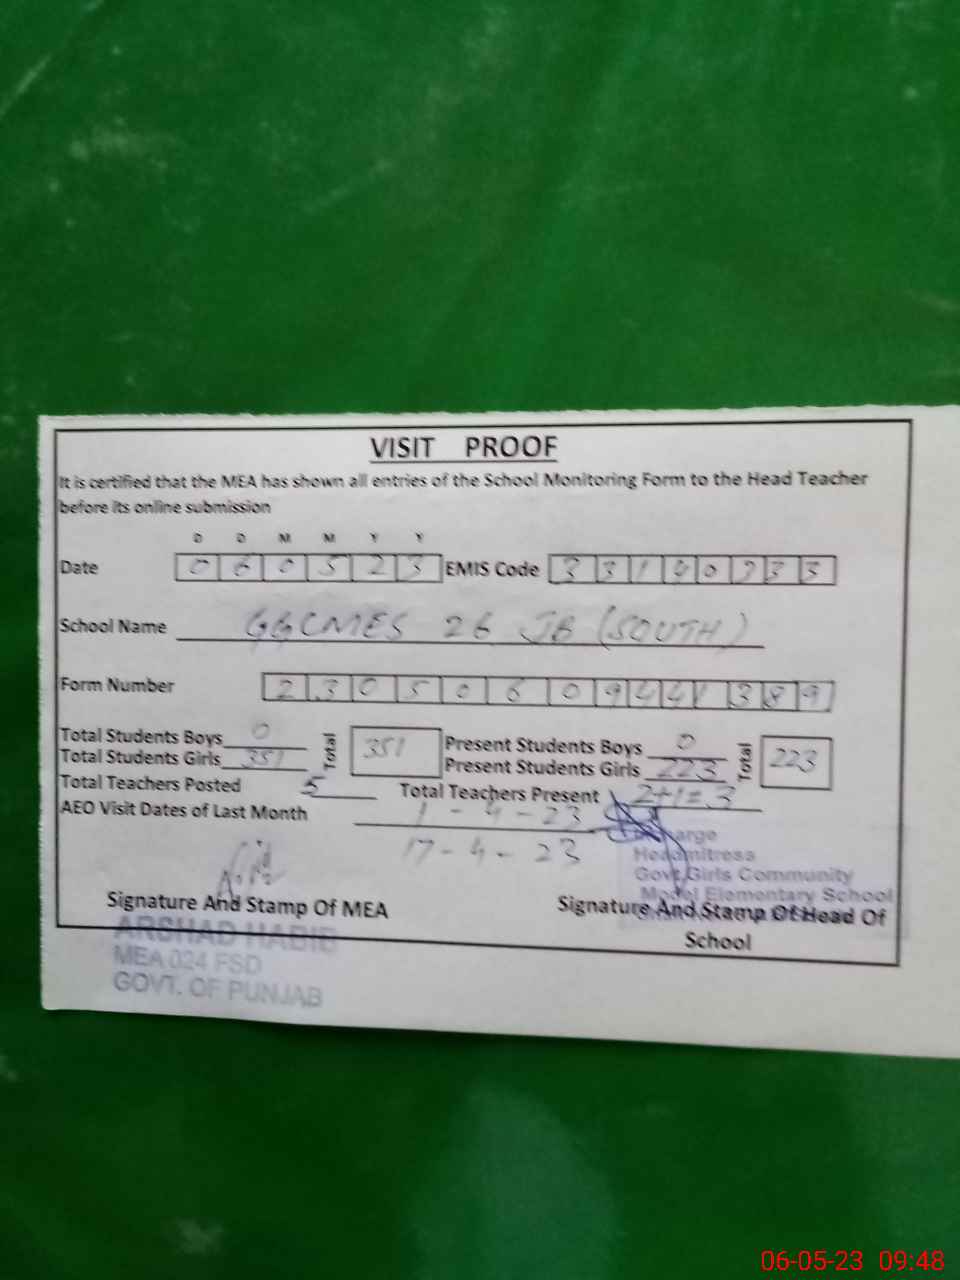 VISIT PROOF
It is certified that the MEA has shown all entries of the School Monitoring Form to the Head Teacher
before its online submission
D D M M Y Y
Date 0 6 0 5 2 3 EMIS Code 3 3 1 4 0 7 3 3
School Name GGCMES 26 JB (SOUTH)
Form Number 2 3 0 5 0 6 0 9 4 4 1 3 8 9
Total Students Boys 0 Total 351 Present Students Boys 0 Total 223
Total Students Girls 351 Present Students Girls 223
Total Teachers Posted 5 Total Teachers Present 2+1=3
AEO Visit Dates of Last Month 1-4-23
17-4-23
Headmitress
Govt. Girls Community
Model Elementary School
Signature And Stamp Of MEA Signature And Stamp Of Head Of
School
ARSHAD HABIB
MEA 024 FSD
GOVT. OF PUNJAB
06-05-23 09:48